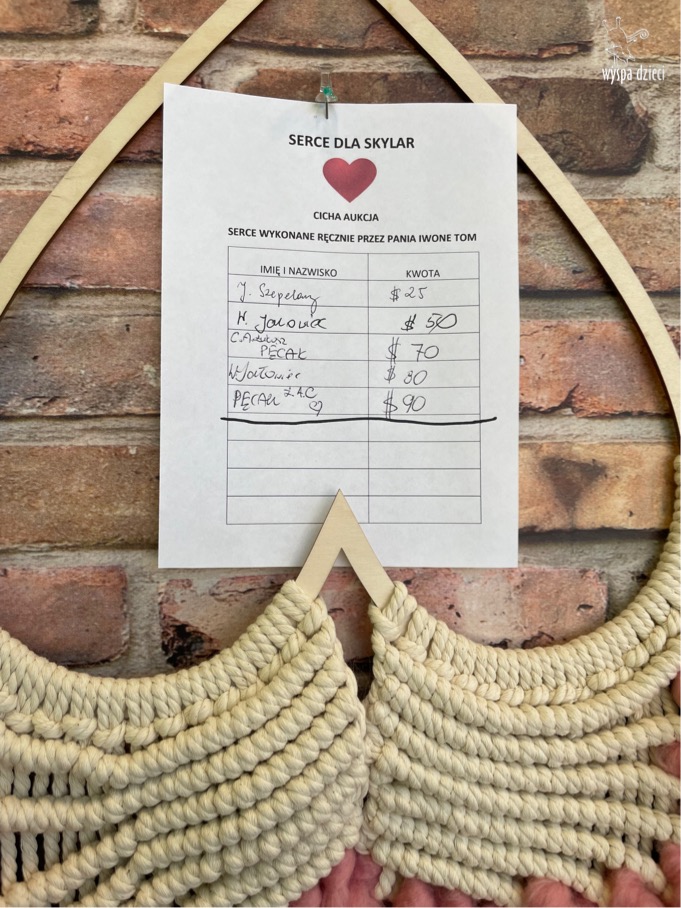 wyspa dzieci
SERCE DLA SKYLAR
CICHA AUKCJA
SERCE WYKONANE RĘCZNIE PRZEZ PANIA IWONE TOM
IMIĘ I NAZWISKO KWOTA
J. $25
$50
PĘCAK $ 70
$ 80
PĘCAK Ł.A.C $ 90